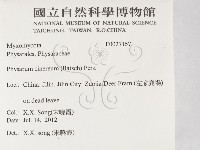 國立自然科學博物館
NATIONAL MUSEUM OF NATURAL SCIENCE
TAICHUNG, TAIWAN, R.O.CHINA
Myxomycota
Physarales, Physaraceae
Physarum cinereum (Batsch) Pers.
Loc: China, Jilin, Jilin City, Zuojia Deer Farm
on dead leaves
Col: X.X. Song
Date: Jul. 14, 2012
Det.: X.X. song